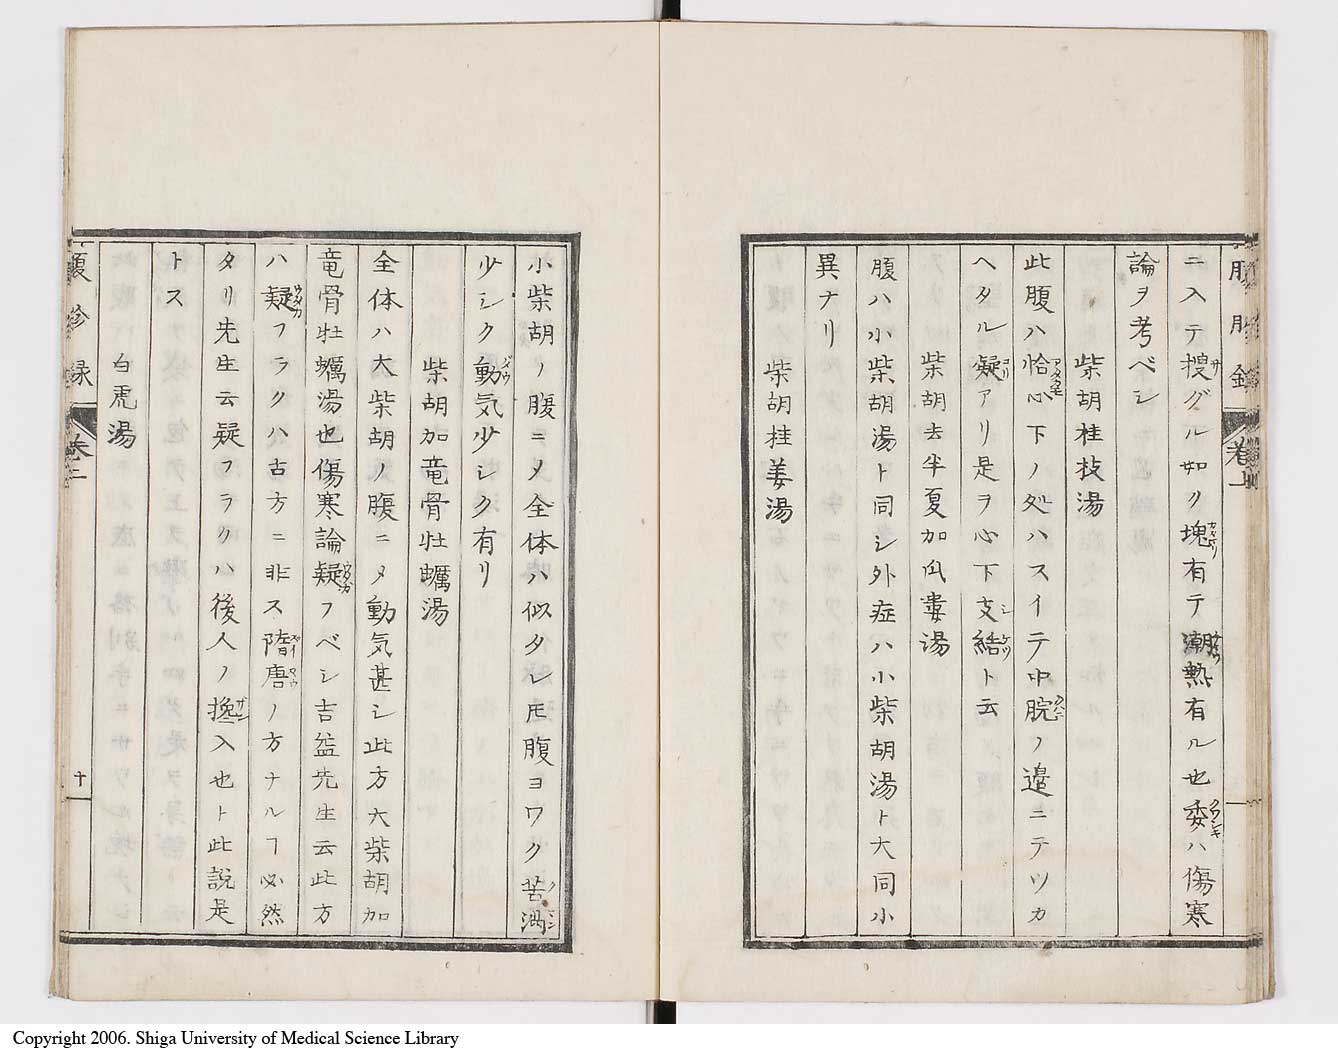 ニ入テ捜グル如ク塊有テ潮熱有ル也委ハ傷寒
論ヲ考ベシ
柴胡桂枝湯
此腹ハ恰心下ノ処ハスイテ中脘ノ邉ニテツカ
ヘタル凝アリ是ヲ心下支結ト云
柴胡去半夏加瓜蔞湯
腹ハ小柴胡湯ト同シ外症ハ小柴胡湯ト大同小
異ナリ
柴胡桂姜湯
小柴胡ノ腹ニ〆全体ハ似タレ𪜈腹ヨワク苦満
少シク動気少シク有リ
柴胡加竜骨牡蠣湯
全体ハ大柴胡ノ腹ニ〆動気甚シ此方大柴胡加
竜骨牡蠣湯也傷寒論疑フベシ吉益先生云此方
ハ疑フラクハ古方ニ非ス隋唐ノ方ナルヿ必然
タリ先生云疑フラクハ後人ノ攙入也ト此説是
トス
白虎湯
腹診録 巻上
十
Copyright 2006. Shiga University of Medical Science Library